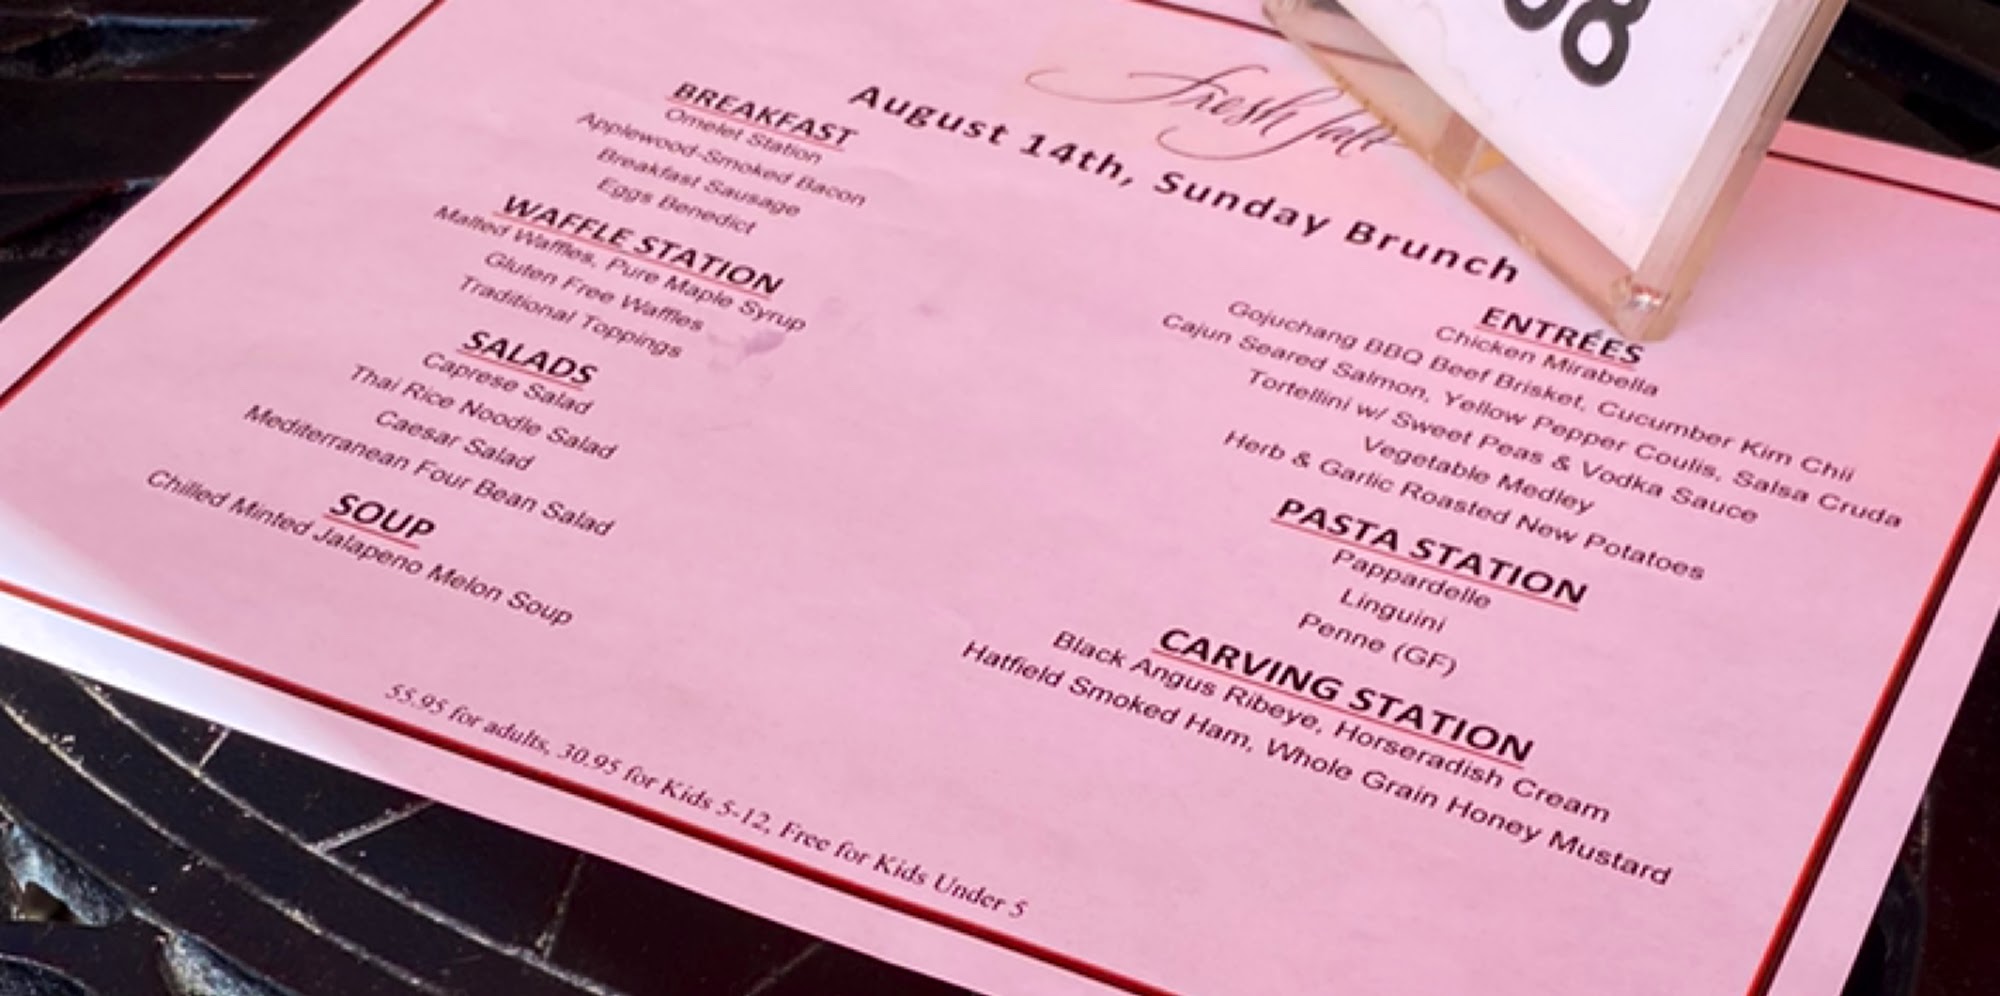 08
Fresh Salt
August 14th, Sunday Brunch
BREAKFAST
Omelet Station
Applewood-Smoked Bacon
Breakfast Sausage
Eggs Benedict
WAFFLE STATION
Malted Waffles, Pure Maple Syrup
Gluten Free Waffles
Traditional Toppings
SALADS
Caprese Salad
Thai Rice Noodle Salad
Caesar Salad
Mediterranean Four Bean Salad
SOUP
Chilled Minted Jalapeno Melon Soup
ENTRÉES
Chicken Mirabella
Gojuchang BBQ Beef Brisket, Cucumber Kim Chii
Cajun Seared Salmon, Yellow Pepper Coulis, Salsa Cruda
Tortellini w/ Sweet Peas & Vodka Sauce
Vegetable Medley
Herb & Garlic Roasted New Potatoes
PASTA STATION
Pappardelle
Linguini
Penne (GF)
CARVING STATION
Black Angus Ribeye, Horseradish Cream
Hatfield Smoked Ham, Whole Grain Honey Mustard
55.95 for adults, 30.95 for Kids 5-12, Free for Kids Under 5